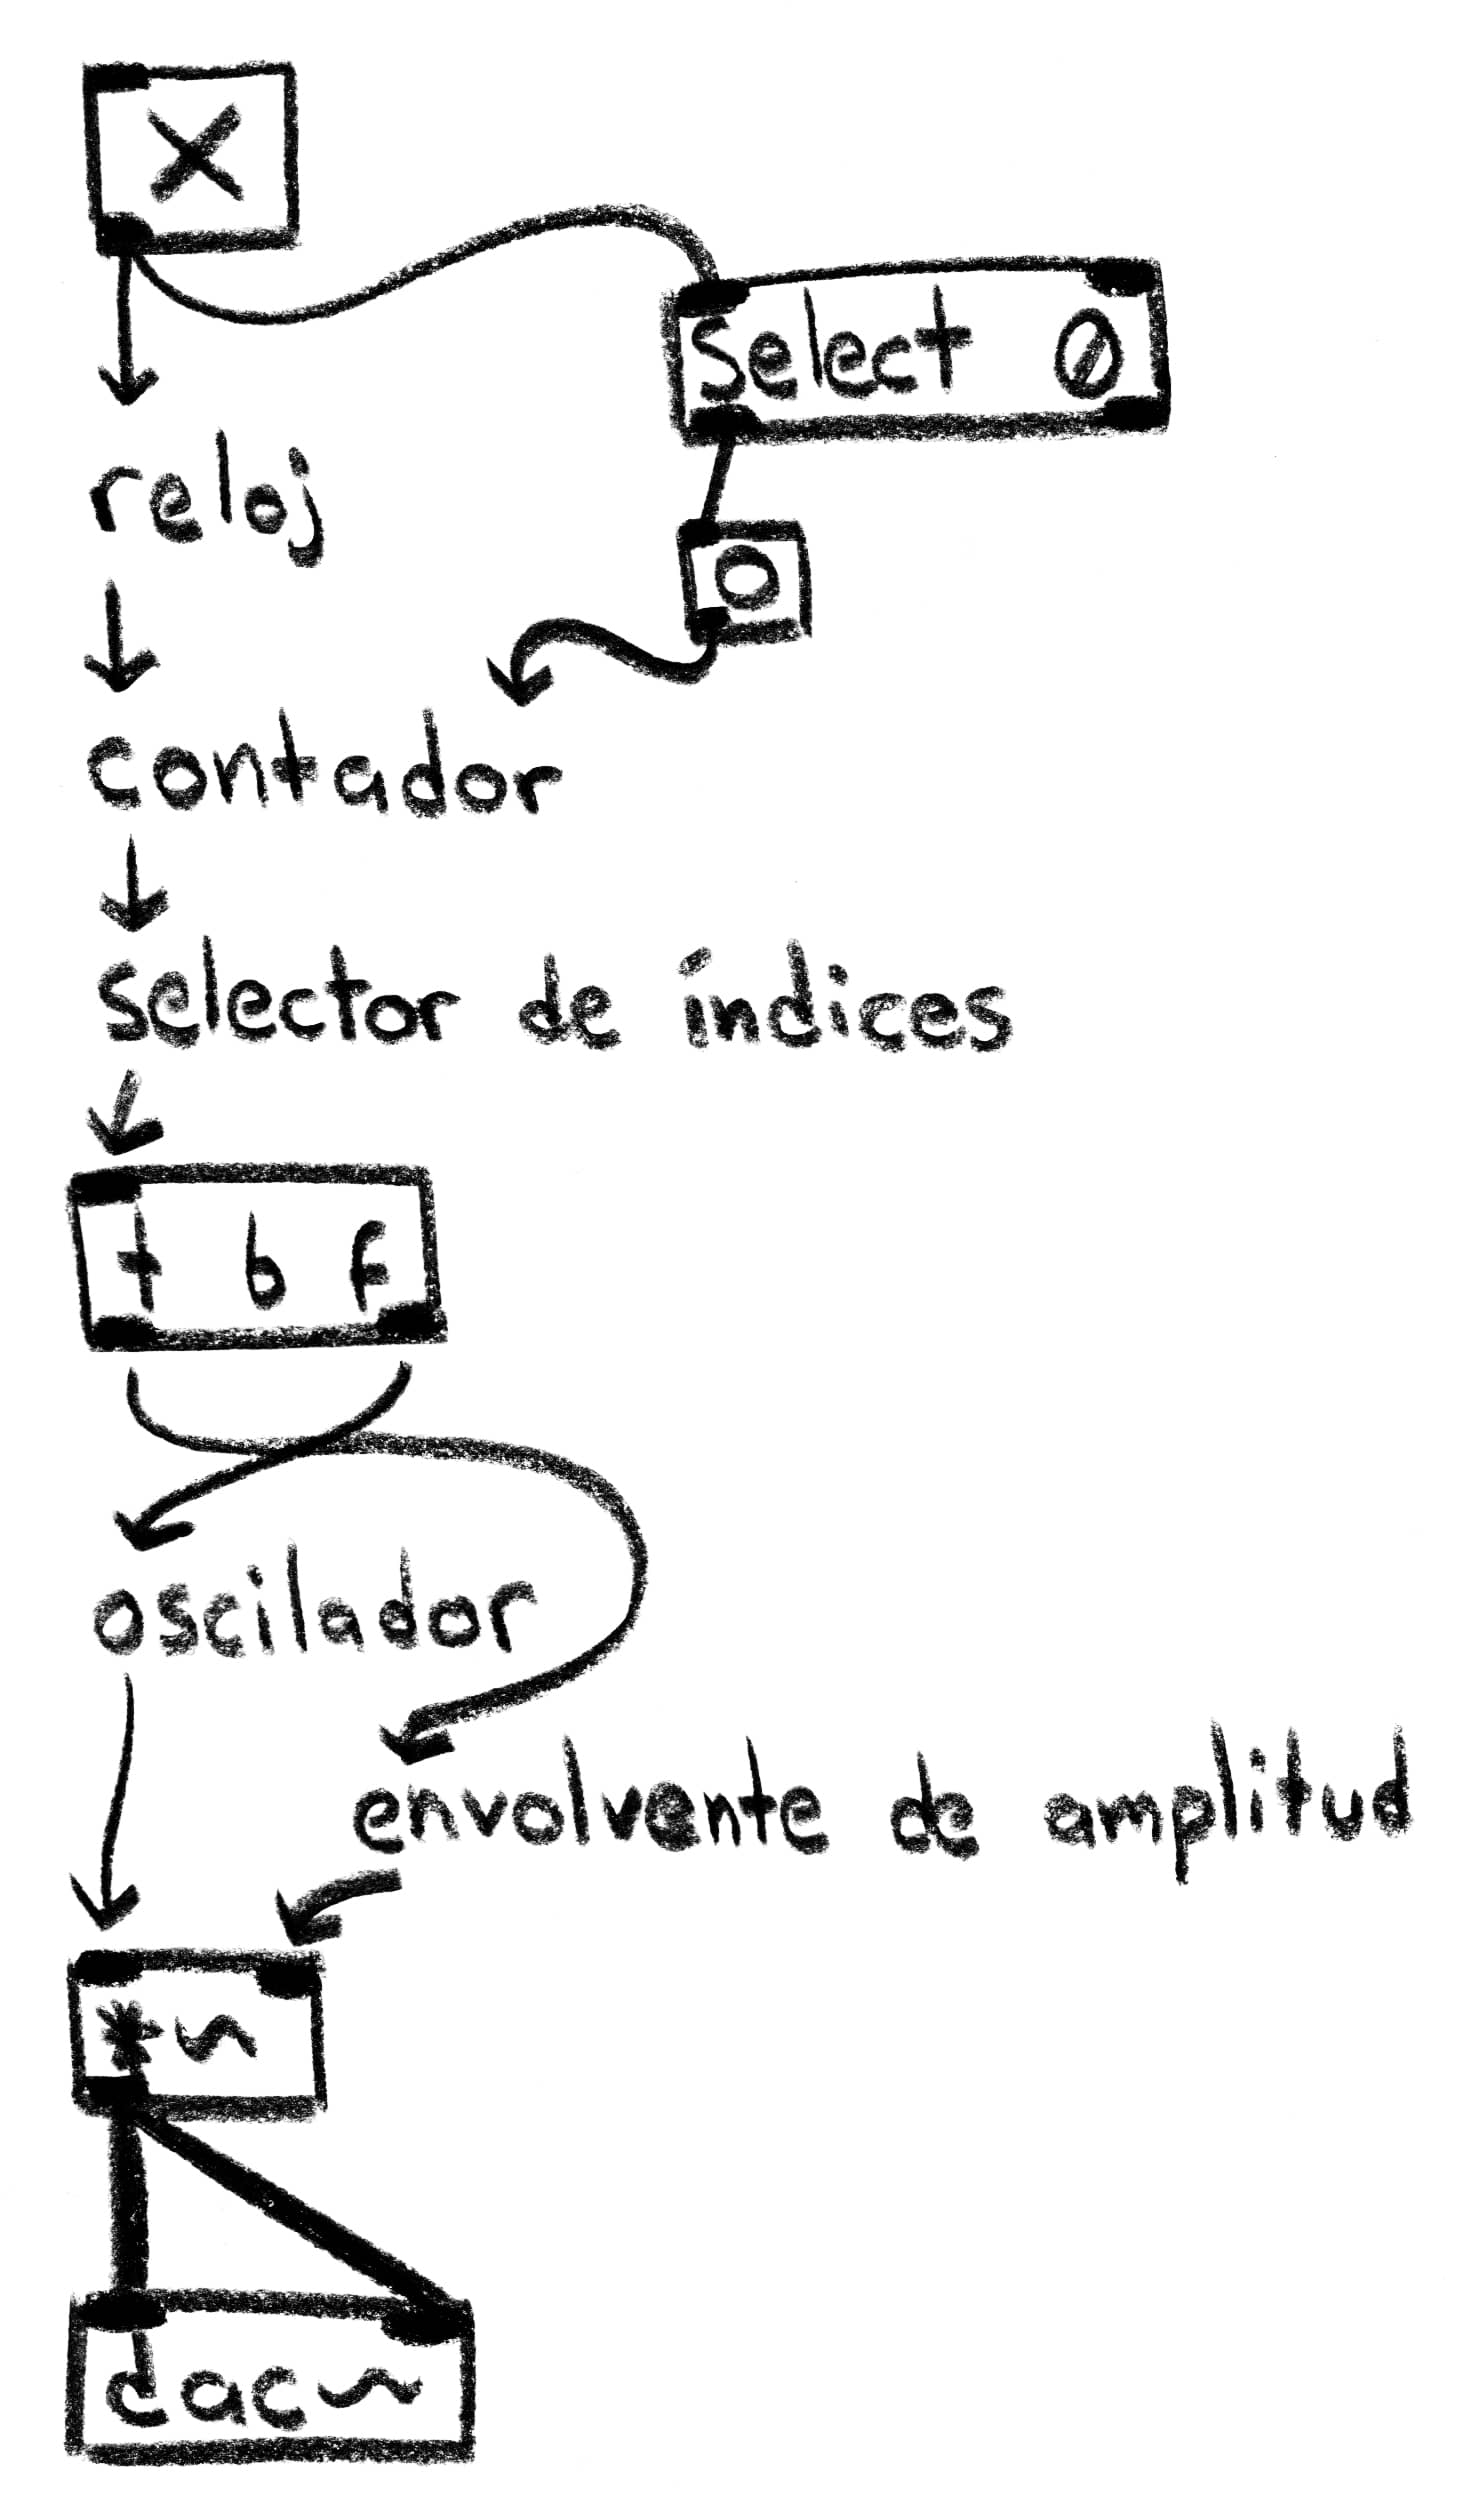 X
select 0
reloj
contador
selector de índices
t b f
oscilador
envolvente de amplitud
*~
dac~